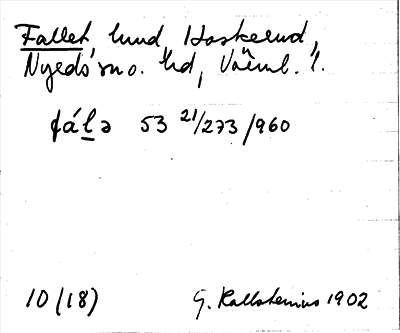 Fallet, lund, Haskerud,
Nyeds sn o. hd, Värml. l.
fála 53 21/273/960
10 (18) G. Kallstenius 1902